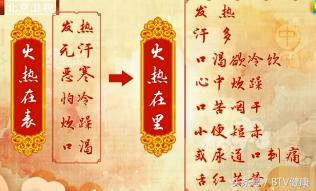 北京卫视
火热在表
发热
无汗
恶寒
怕冷
烦躁
口渴
火热在里
发热
汗多
口渴欲冷饮
心中烦躁
口苦咽干
小便短赤
或尿道口刺痛
舌红苔黄
头条号 / BTV健康